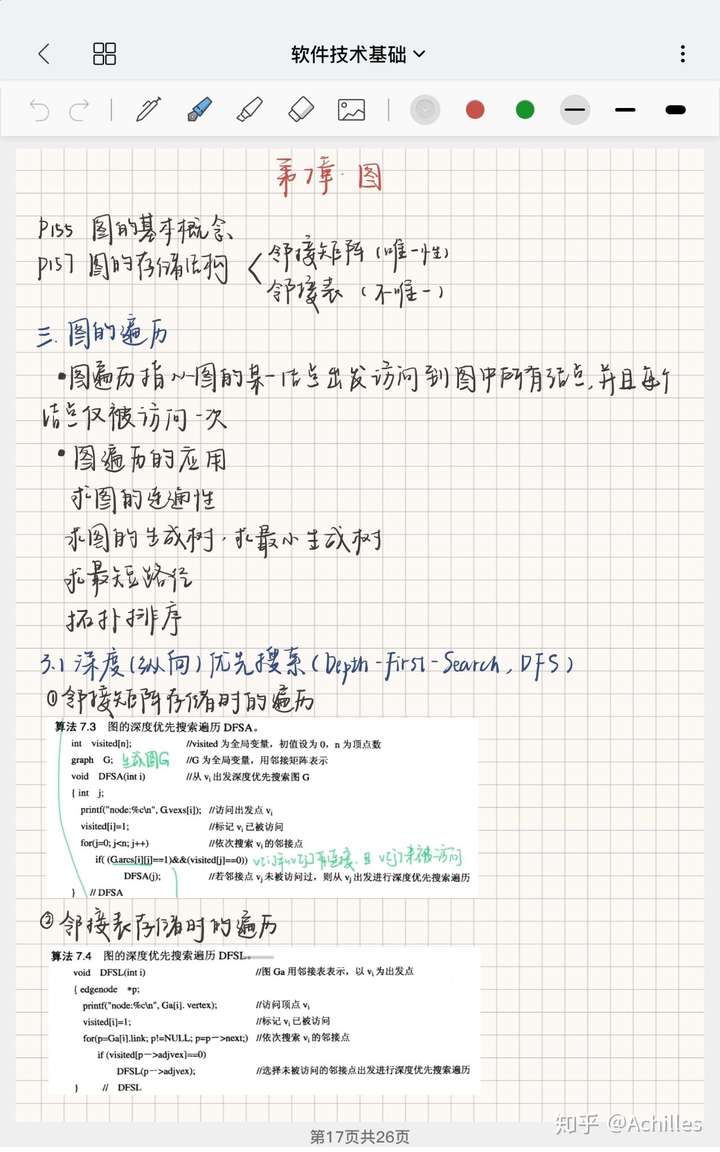 软件技术基础
第7章·图
P155 图的基本概念
P157 图的存储结构
邻接矩阵(唯一性)
邻接表(不唯一)
三.图的遍历
·图遍历指从图的某一结点出发访问到图中所有结点,并且每个
结点仅被访问一次
·图遍历的应用
求图的连通性
求图的生成树·求最小生成树
求最短路径
拓扑排序
3.1 深度(纵向)优先搜索(Depth-First-Search, DFS)
①邻接矩阵存储时的遍历
算法 7.3 图的深度优先搜索遍历 DFSA。
int visited[n]; //visited 为全局变量，初值设为 0，n 为顶点数
graph G; 生成图G //G 为全局变量，用邻接矩阵表示
void DFSA(int i) //从 vi 出发深度优先搜索图 G
{ int j;
printf("node:%c\n", G.vexs[i]); //访问出发点 vi
visited[i]=1; //标记 vi 已被访问
for(j=0; j<n; j++) //依次搜索 vi 的邻接点
if( (G.arcs[i][j]==1)&&(visited[j]==0)) v[i]和v[j]有连接.且 v[j]未被访问
DFSA(j); //若邻接点 vj 未被访问过，则从 vj 出发进行深度优先搜索遍历
} // DFSA
②邻接表存储时的遍历
算法 7.4 图的深度优先搜索遍历 DFSL。
void DFSL(int i) //图 Ga 用邻接表表示，以 vi 为出发点
{ edgenode *p;
printf("node:%c\n", Ga[i]. vertex); //访问顶点 vi
visited[i]=1; //标记 vi 已被访问
for(p=Ga[i].link; p!=NULL; p=p—>next;) //依次搜索 vi 的邻接点
if (visited[p—>adjvex]==0)
DFSL(p—>adjvex); //选择未被访问的邻接点出发进行深度优先搜索遍历
} // DFSL
知乎 @Achilles
第17页共26页